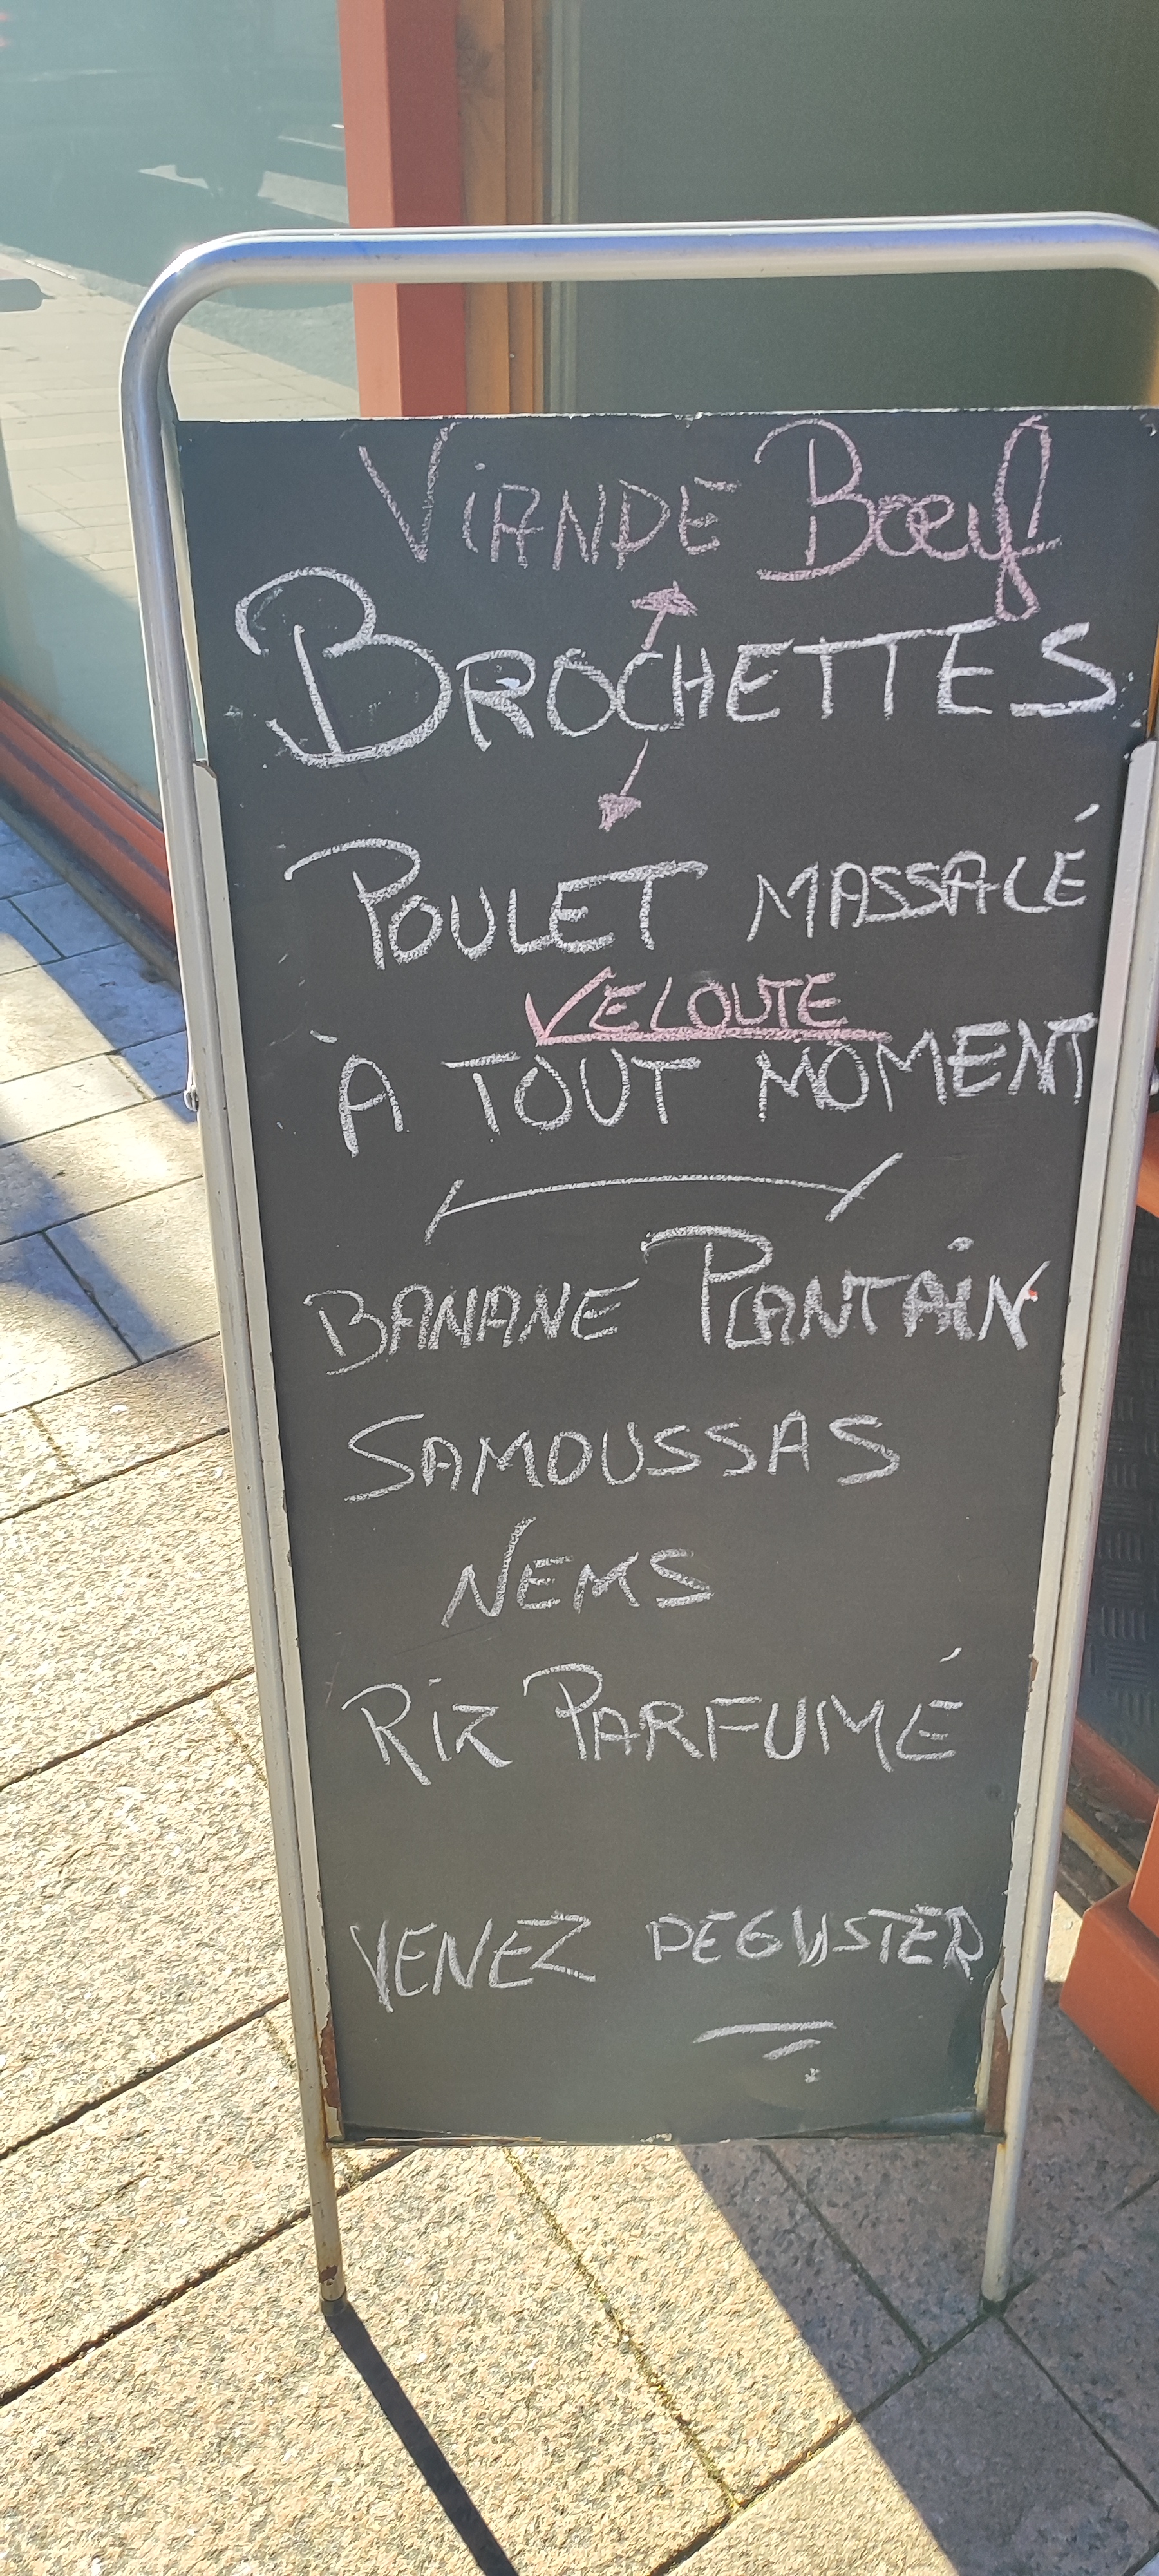 ViANDE Bœuf
BROCHETTES
POULET MASSALÉ
VELOUTE
À TOUT MOMENT
BANANE PLANTAiN
SAMOUSSAS
NEMS
RiZ PARFUMÉ
VENEZ DEGUSTER